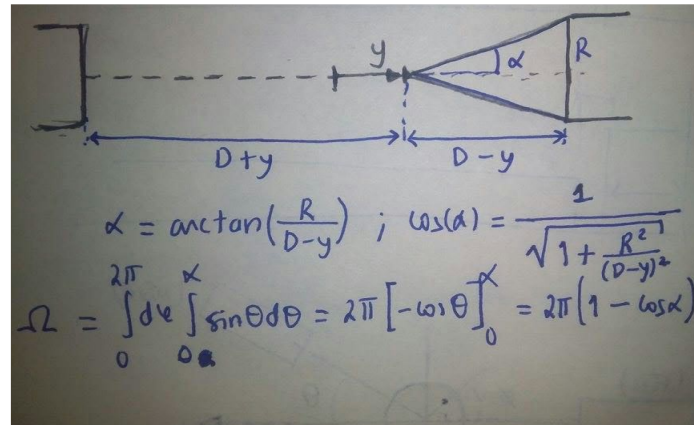 y α R
D+y D-y
α = arctan(R/(D-y)) ; cos(α) = 1/√(1 + R²/(D-y)²)
Ω = ∫₀^2π dφ ∫₀^α sinθdθ = 2π[-cosθ]₀^α = 2π(1 - cosα)